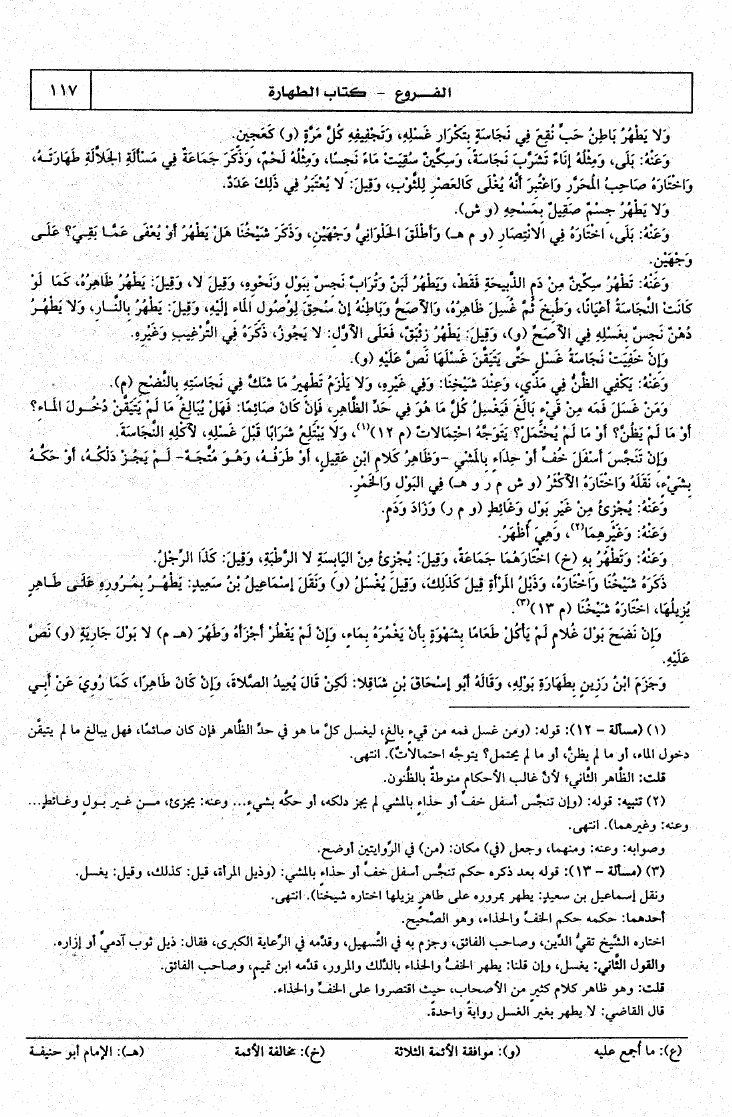 الفـــروع - كتاب الطهارة
١١٧
وَلَا يَطْهُرُ بَاطِنُ حَبٍّ نُقِعَ فِي نَجَاسَةٍ بِتَكْرَارِ غَسْلِهِ، وَتَجْفِيفِهِ كُلَّ مَرَّةٍ (و) كَعَجِينٍ.
وَعَنْهُ: بَلَى، وَمِثْلُهُ إِنَاءٌ تَشَرَّبَ نَجَاسَةً، وَسِكِّينٌ سُقِيَتْ مَاءً نَجِسًا، وَمِثْلُهُ لَحْمٌ، وَذَكَرَ جَمَاعَةٌ فِي مَسْأَلَةِ الْجَلَّالَةِ طَهَارَتَـهُ،
وَاخْتَارَهُ صَاحِبُ المُحَرَّرِ وَاعْتَبَرَ أَنَّهُ يُغْلَى كَالعَصْرِ لِلثَّوْبِ، وَقِيلَ: لَا يُعْتَبَرُ فِي ذَلِكَ عَدَدٌ.
وَلَا يَطْهُرُ جِسْمٌ صَقِيلٌ بِمَسْحِهِ (و ش).
وَعَنْهُ: بَلَى، اخْتَارَهُ فِي الِانْتِصَارِ (و م هـ) وَأَطْلَقَ الحَلْوَانِيُّ وَجْهَيْنِ، وَذَكَرَ شَيْخُنَا هَلْ يَطْهُرُ أَوْ يُعْفَى عَمَّـا بَقِـيَ؟ عَلَـى
وَجْهَيْنِ.
وَعَنْهُ: تَطْهُرُ سِكِّينٌ مِنْ دَمِ الذَّبِيحَةِ فَقَطْ، وَيَطْهُرُ لَبِنٌ وَتُرَابٌ نَجِسٌ بِبَوْلٍ وَنَحْوِهِ، وَقِيلَ لَا، وَقِيلَ: يَطْهُرُ ظَاهِرُهُ، كَمَا لَوْ
كَانَتْ النَّجَاسَةُ أَعْيَانًا، وَطُبِخَ ثُمَّ غُسِلَ ظَاهِرُهُ، وَالأَصَحُّ وَبَاطِنُهُ إِنْ سُحِقَ لِوُصُولِ المَاءِ إِلَيْهِ، وَقِيلَ: يَطْهُرُ بِالنَّـارِ، وَلَا يَطْهُـرُ
دُهْنٌ نَجِسٌ بِغَسْلِهِ فِي الأَصَحِّ (و)، وَقِيلَ: يَطْهُرُ زِئْبَقٌ، فَعَلَى الأَوَّلِ: لَا يَجُوزُ، ذَكَرَهُ فِي التَّرْغِيبِ وَغَيْرِهِ.
وَإِنْ خَفِيَتْ نَجَاسَةٌ غَسَلَ حَتَّى يَتَيَقَّنَ غَسْلَهَا نَصَّ عَلَيْهِ (و).
وَعَنْهُ: يَكْفِي الظَّنُّ فِي مَذْيٍ، وَعِنْدَ شَيْخِنَا: وَفِي غَيْرِهِ، وَلَا يَلْزَمُ تَطْهِيرُ مَا شَكَّ فِي نَجَاسَتِهِ بِالنَّضْحِ (م).
وَمَنْ غَسَلَ فَمَه مِنْ قَيْءٍ بَالَغَ فَيَغْسِلُ كُلَّ مَا هُوَ فِي حَدِّ الظَّاهِرِ، فَإِنْ كَانَ صَائِمًا: فَهَلْ يُبَالِغُ مَا لَمْ يَتَيَقَّنْ دُخُـولَ المَـاءِ؟
أَوْ مَا لَمْ يَظُنَّ؟ أَوْ مَا لَمْ يُحْتَمَلْ؟ يَتَوَجَّهُ احْتِمَالَاتٌ (م ١٢)(١)، وَلَا يَبْتَلِعُ شَرَابًا قَبْلَ غَسْلِهِ، لِأَكْلِهِ النَّجَاسَةَ.
وَإِنْ تَنَجَّسَ أَسْفَلُ خُفٍّ أَوْ حِذَاءٍ بِالمَشْيِ -وَظَاهِرُ كَلَامِ ابْنِ عَقِيلٍ، أَوْ طَرَفُـهُ، وَهُـوَ مُتَّجَـهٌ- لَـمْ يَجُـزْ دَلْكُـهُ، أَوْ حَكُّـهُ
بِشَيْءٍ، نَقَلَهُ وَاخْتَارَهُ الأَكْثَرُ (و ش م ر و هـ) فِي البَوْلِ وَالخَمْرِ.
وَعَنْهُ: يُجْزِئُ مِنْ غَيْرِ بَوْلٍ وَغَائِطٍ (و م ر) وَزَادَ وَدَمٍ.
وَعَنْهُ: وَغَيْرِهِمَا(٢)، وَهِيَ أَظْهَرُ.
وَعَنْهُ: وَتَطْهُرُ بِهِ (خ) اخْتَارَهُمَا جَمَاعَةٌ، وَقِيلَ: يُجْزِئُ مِنْ اليَابِسَةِ لَا الرَّطْبَةِ، وَقِيلَ: كَذَا الرِّجْلُ.
ذَكَرَهُ شَيْخُنَا وَاخْتَارَهُ، وَذَيْلُ المَرْأَةِ قِيلَ كَذَلِكَ، وَقِيلَ يُغْسَلُ (و) وَنَقَلَ إِسْمَاعِيلُ بْنُ سَعِيدٍ: يَطْهُـرُ بِمُـرُورِهِ عَلَـى طَـاهِرٍ
يُزِيلُهَا، اخْتَارَهُ شَيْخُنَا (م ١٣)(٣).
وَإِنْ نَضَحَ بَوْلَ غُلَامٍ لَمْ يَأْكُلْ طَعَامًا بِشَهْوَةٍ بِأَنْ يَغْمُرَهُ بِمَاءٍ، وَإِنْ لَمْ يَقْطُرْ أَجْزَأَهُ وَطَهُرَ (هـ م) لَا بَوْلَ جَارِيَةٍ (و) نَصَّ
عَلَيْهِ.
وَجَزَمَ ابْنُ رَزِينٍ بِطَهَارَةِ بَوْلِهِ، وَقَالَهُ أَبُو إِسْحَاقَ بْنِ شَاقِلَا: لَكِنْ قَالَ يُعِيدُ الصَّلَاةَ، وَإِنْ كَانَ طَاهِرًا، كَمَا رُوِيَ عَنْ أَبِـي
(١) (مسألة - ١٢): قوله: (ومن غسل فمه من قيءٍ بالغ، ليغسل كلَّ ما هو في حدِّ الظَّاهر فإن كان صائمًا، فهل يبالغ ما لم يتيقَّن
دخول الماء، أو ما لم يظنَّ، أو ما لم يحتمل؟ يتوجَّه احتمالاتٌ). انتهى.
قلت: الظَّاهر الثَّاني؛ لأنَّ غالب الأحكام منوطةٌ بالظُّنون.
(٢) تنبيه: قوله: (وإن تنجَّس أسفل خفٍّ أو حذاءٍ بالمشي لم يجز دلكه، أو حكُّه بشيءٍ... وعنه: يجزئ، مـــن غـير بـولٍ وغـائطٍ...
وعنه: وغيرهما). انتهى.
وصوابه: وعنه: ومنهما، وجعل (في) مكان: (من) في الرِّوايتين أوضح.
(٣) (مسألة - ١٣): قوله بعد ذكره حكم تنجُّس أسفل خفٍّ أو حذاءٍ بالمشي: (وذيل المرأة، قيل: كذلك، وقيل: يغسل.
ونقل إسماعيل بن سعيدٍ: يطهر بمروره على طاهرٍ يزيلها اختاره شيخنا). انتهى.
أحدهما: حكمه حكم الخفِّ والحذاء، وهو الصَّحيح.
اختاره الشَّيخ تقيُّ الدِّين، وصاحب الفائق، وجزم به في التَّسهيل، وقدَّمه في الرِّعاية الكبرى، فقال: ذيل ثوب آدميٍّ أو إزاره.
والقول الثَّاني: يغسل، وإن قلنا: يطهر الخفُّ والحذاء بالدَّلك والمرور، قدَّمه ابن تميمٍ، وصاحب الفائق.
قلت: وهو ظاهر كلام كثيرٍ من الأصحاب، حيث اقتصروا على الخفِّ والحذاء.
قال القاضي: لا يطهر بغير الغسل روايةً واحدةً.
(ع): ما أُجمع عليه (و): موافقة الأئمة الثلاثة (خ): مخالفة الأئمة (هـ): الإمام أبو حنيفة